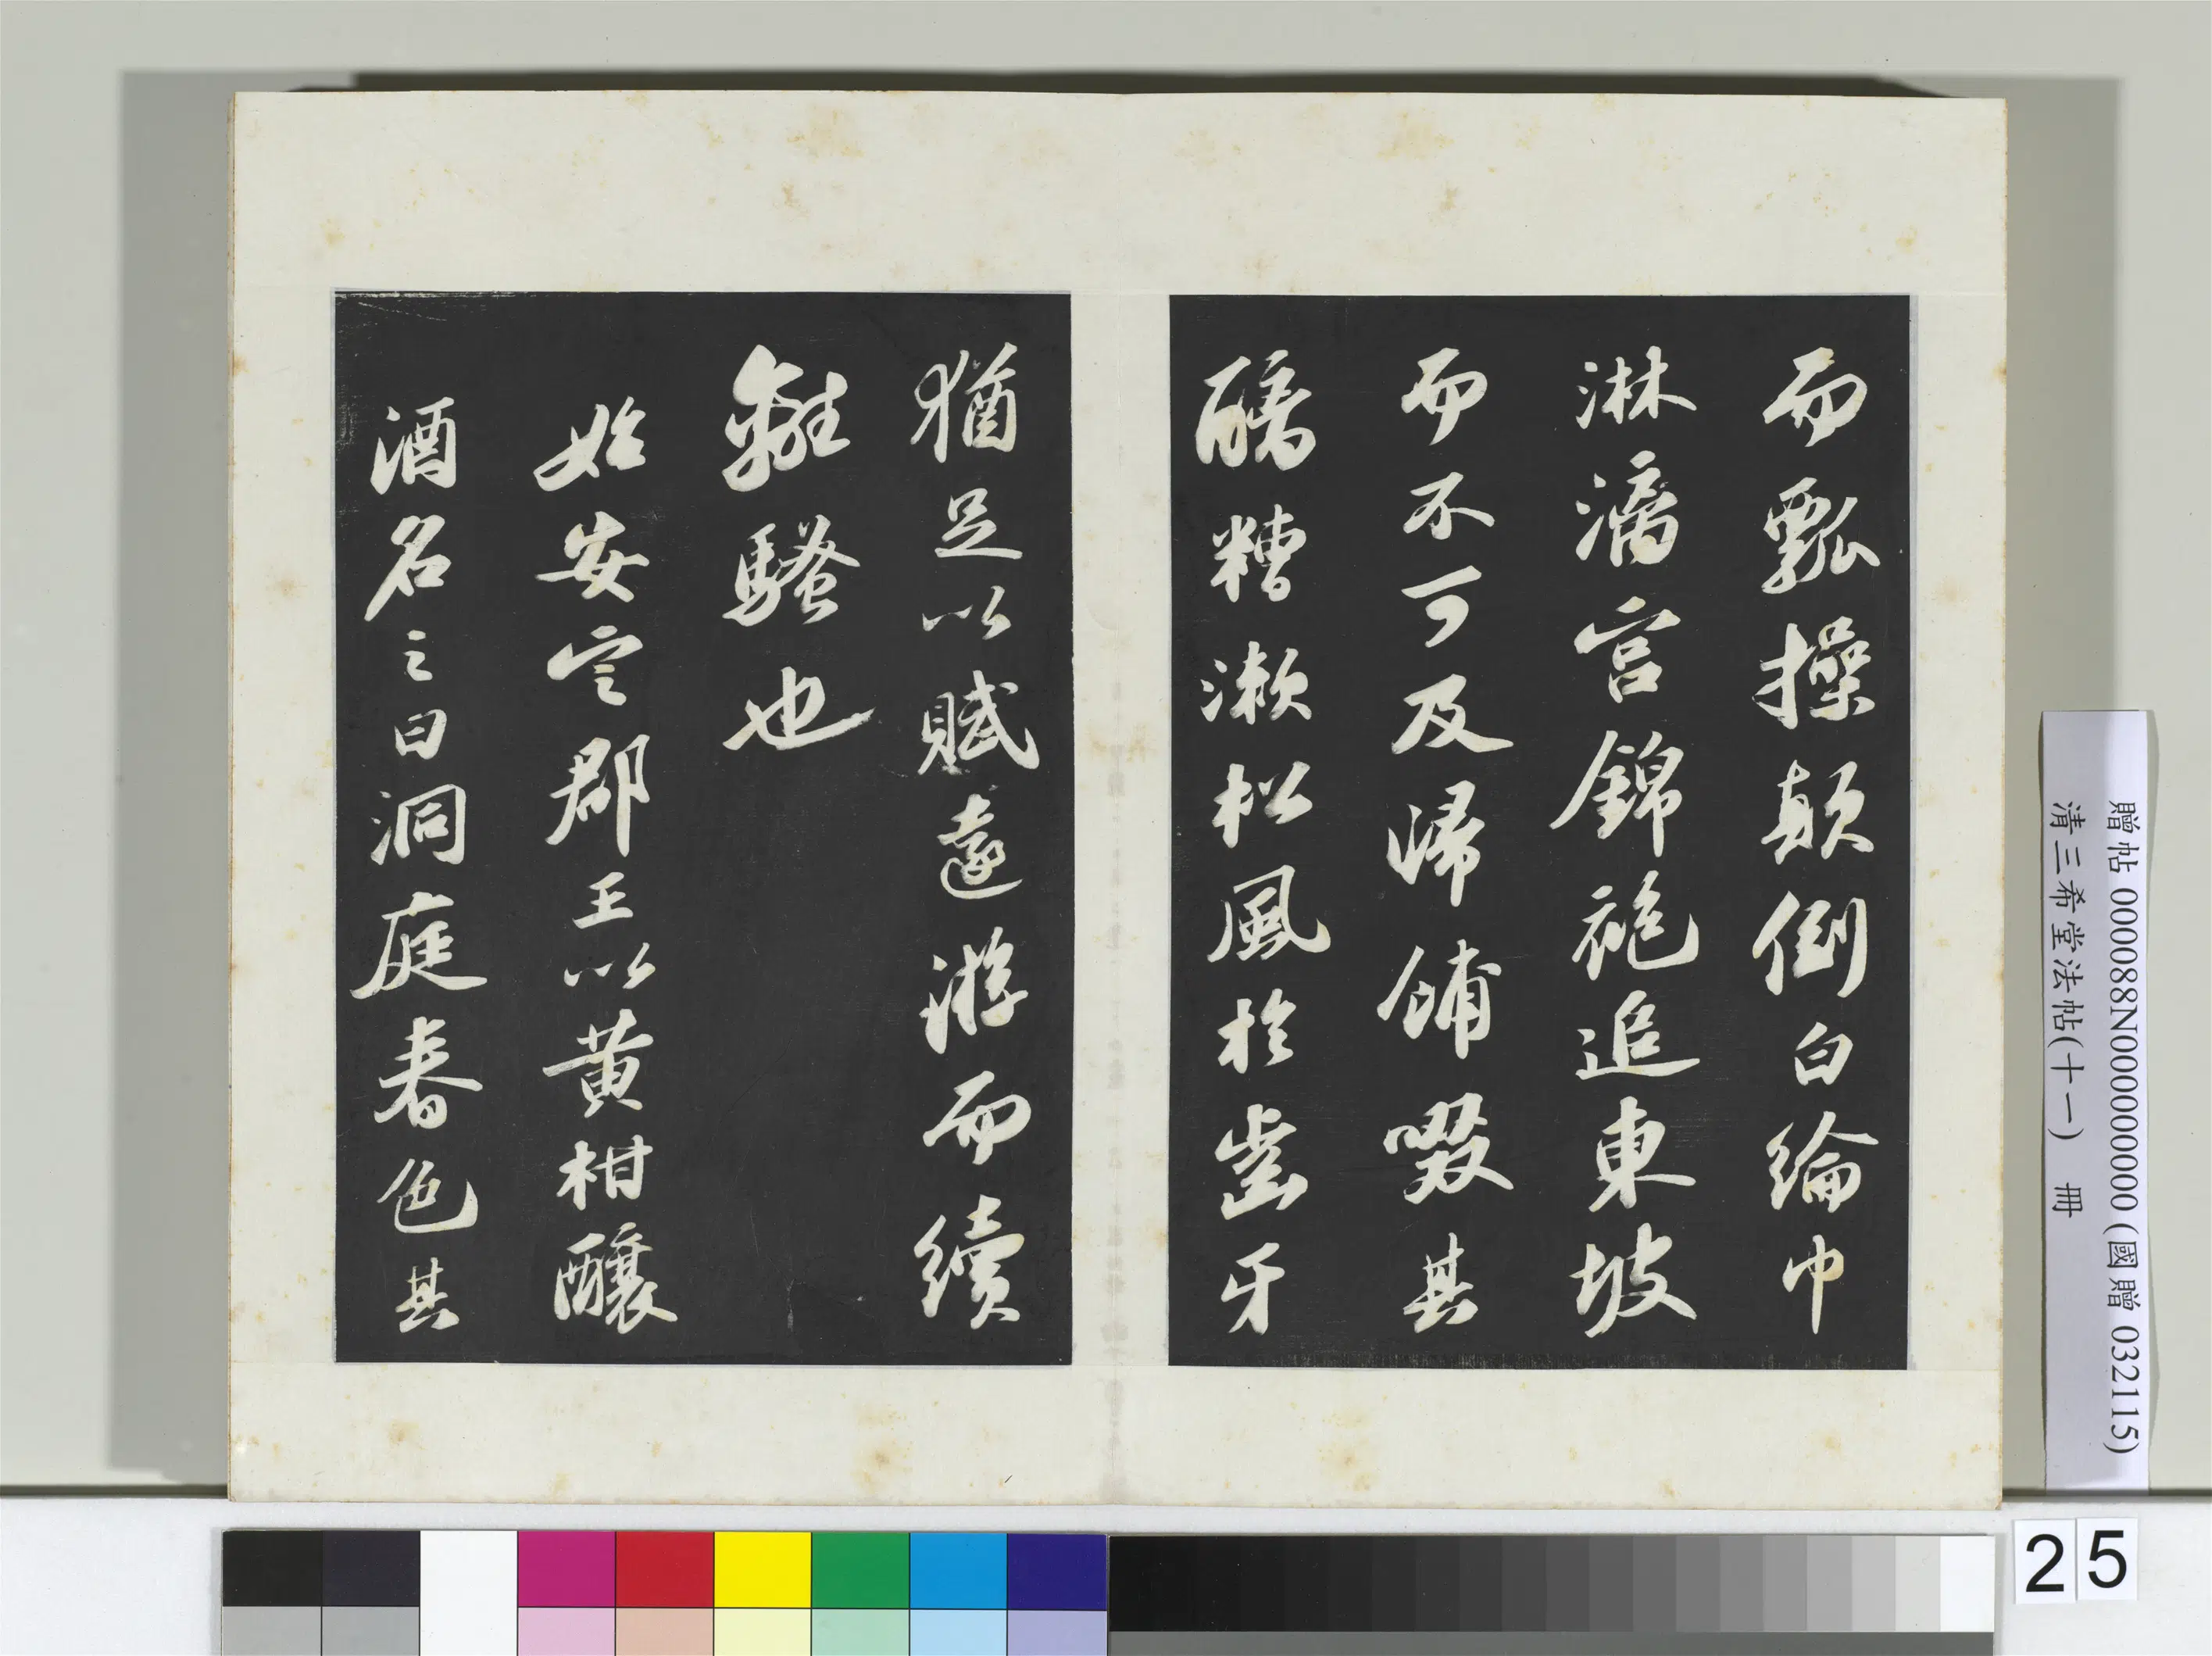 而瓢操顛倒白綸巾
淋漓宮錦袍追東坡
而不可及歸餔歠其
醨糟漱松風於齒牙
猶足以賦遠游而續
離騷也
始安定郡王以黄柑釀
酒名之曰洞庭春色其
贈帖 000088N000000000 (國贈 032115)
清三希堂法帖(十一) 冊
25